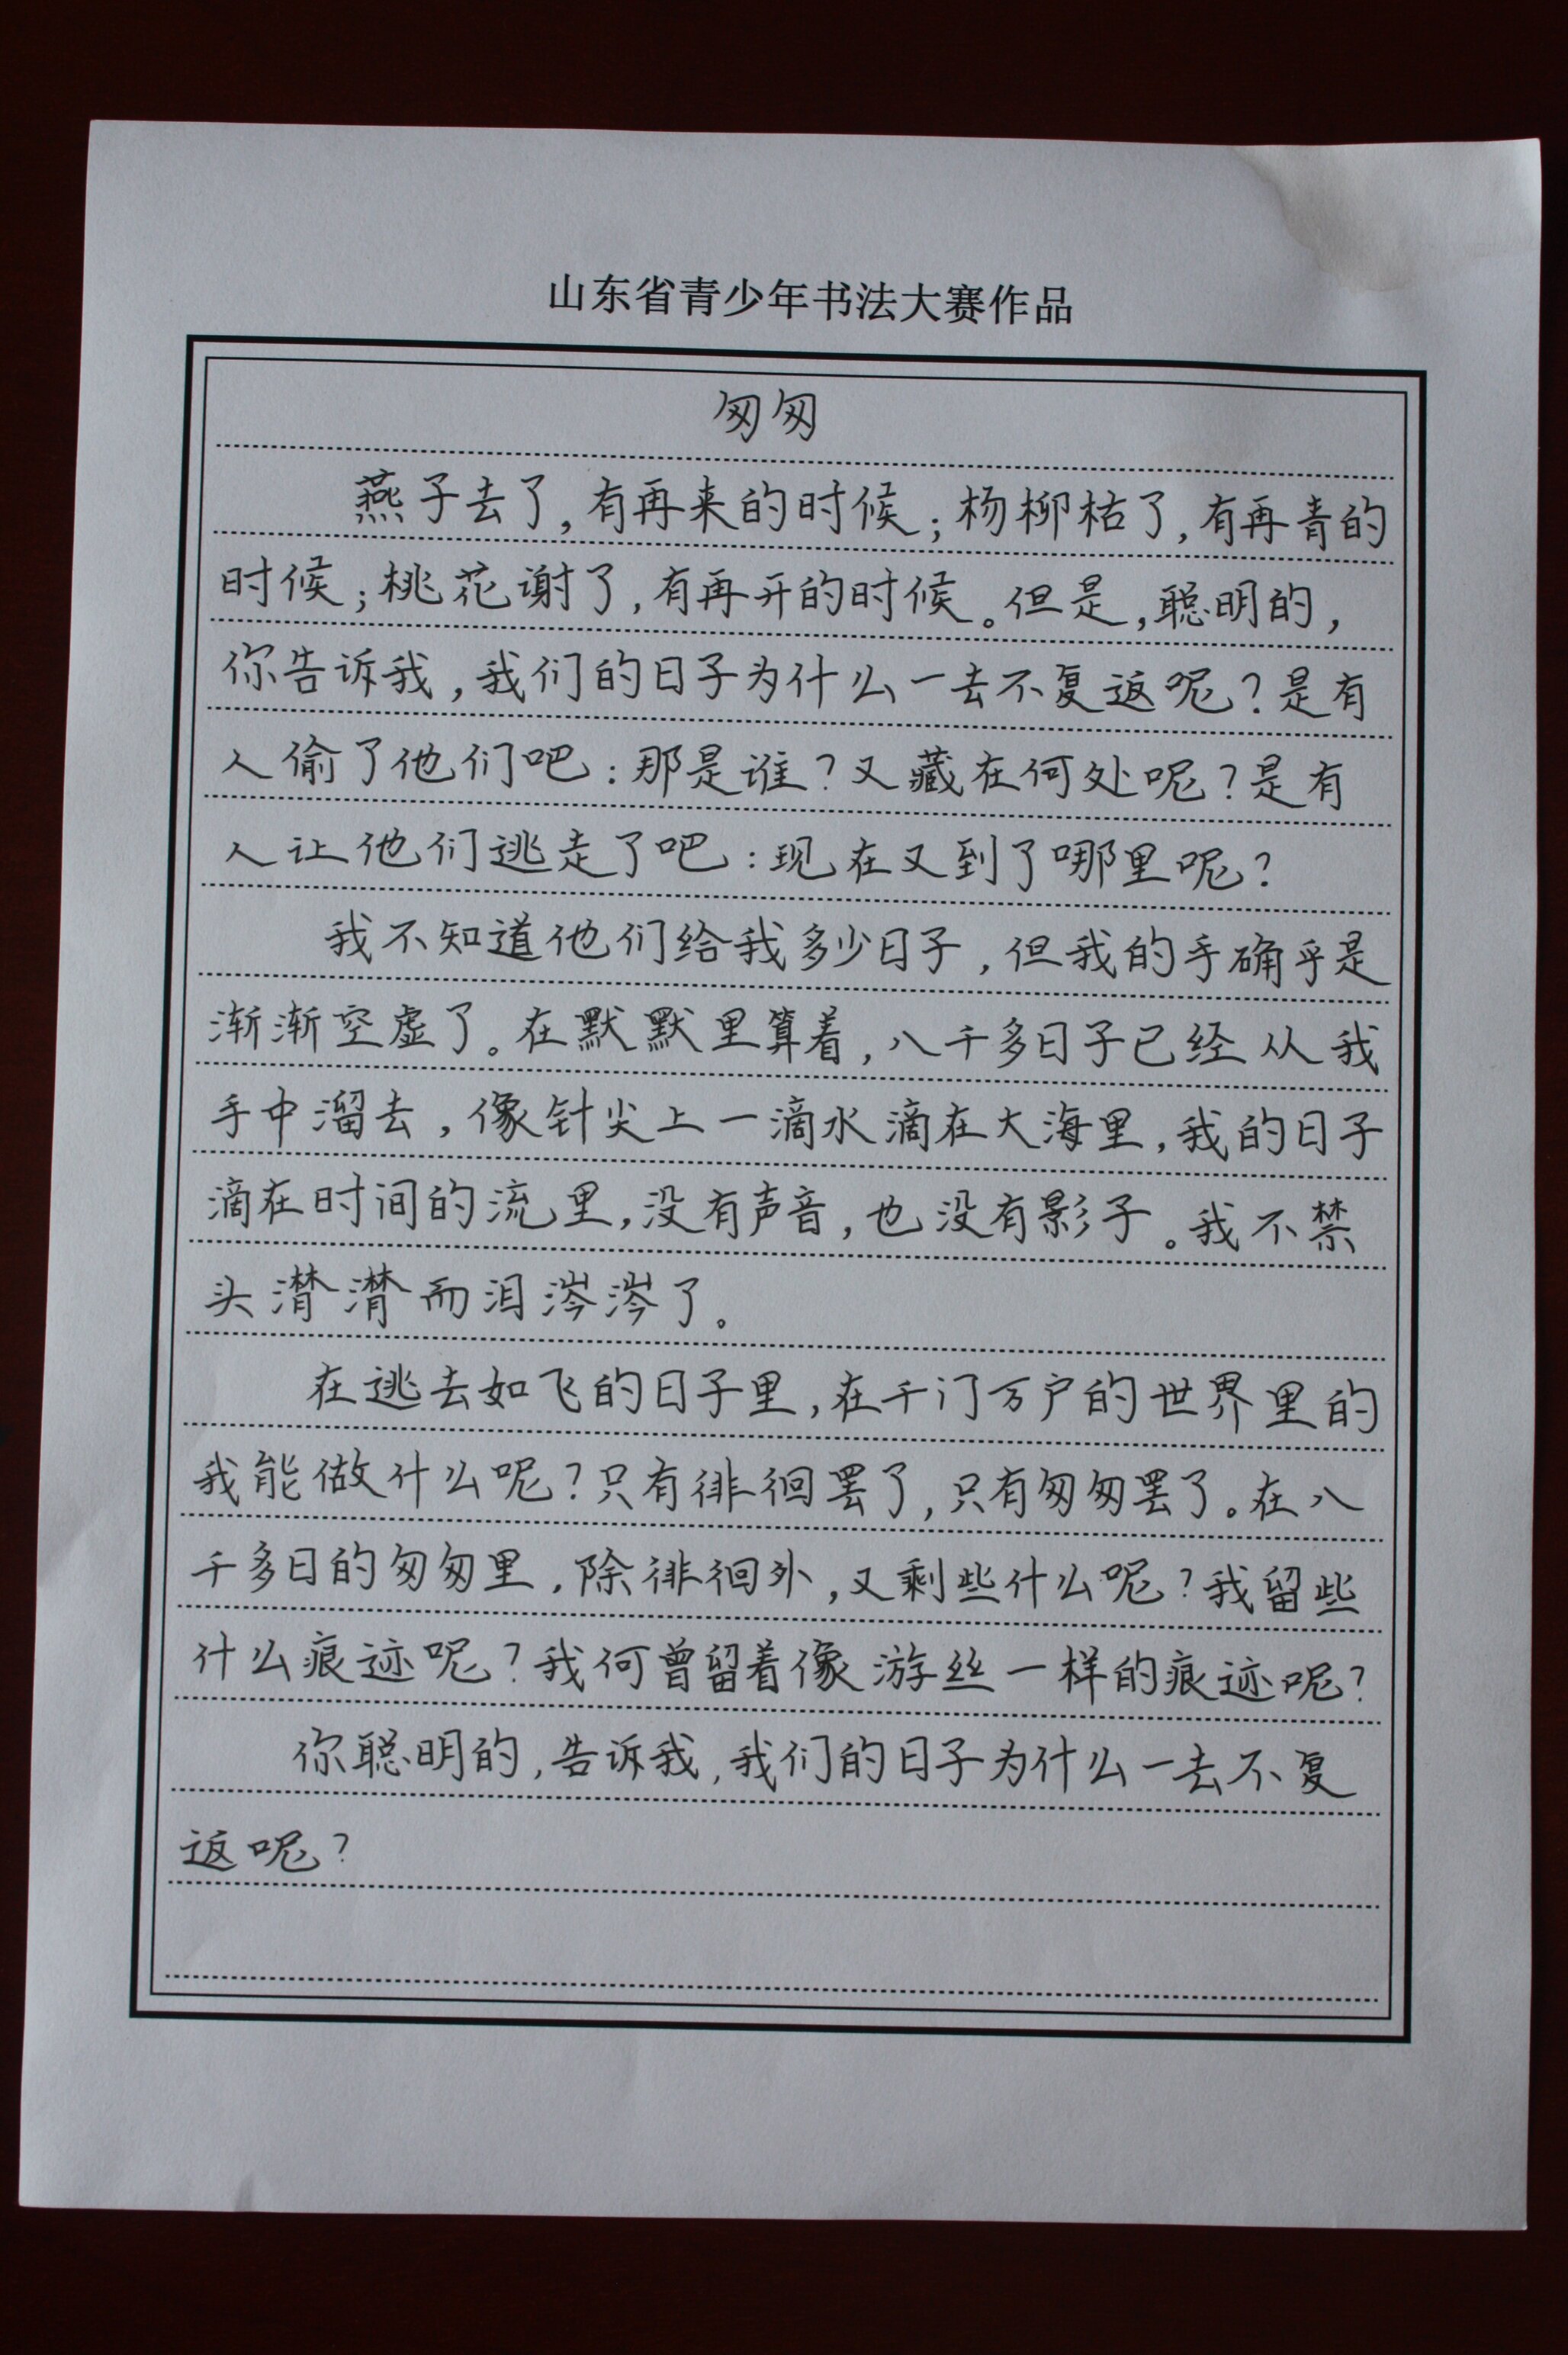 山东省青少年书法大赛作品
匆匆
燕子去了，有再来的时候；杨柳枯了，有再青的
时候；桃花谢了，有再开的时候。但是，聪明的，
你告诉我，我们的日子为什么一去不复返呢？是有
人偷了他们吧：那是谁？又藏在何处呢？是有
人让他们逃走了吧：现在又到了哪里呢？
我不知道他们给我多少日子，但我的手确乎是
渐渐空虚了。在默默里算着，八千多日子已经从我
手中溜去，像针尖上一滴水滴在大海里，我的日子
滴在时间的流里，没有声音，也没有影子。我不禁
头潸潸而泪涔涔了。
在逃去如飞的日子里，在千门万户的世界里的
我能做什么呢？只有徘徊罢了，只有匆匆罢了。在八
千多日的匆匆里，除徘徊外，又剩些什么呢？我留些
什么痕迹呢？我何曾留着像游丝一样的痕迹呢？
你聪明的，告诉我，我们的日子为什么一去不复
返呢？